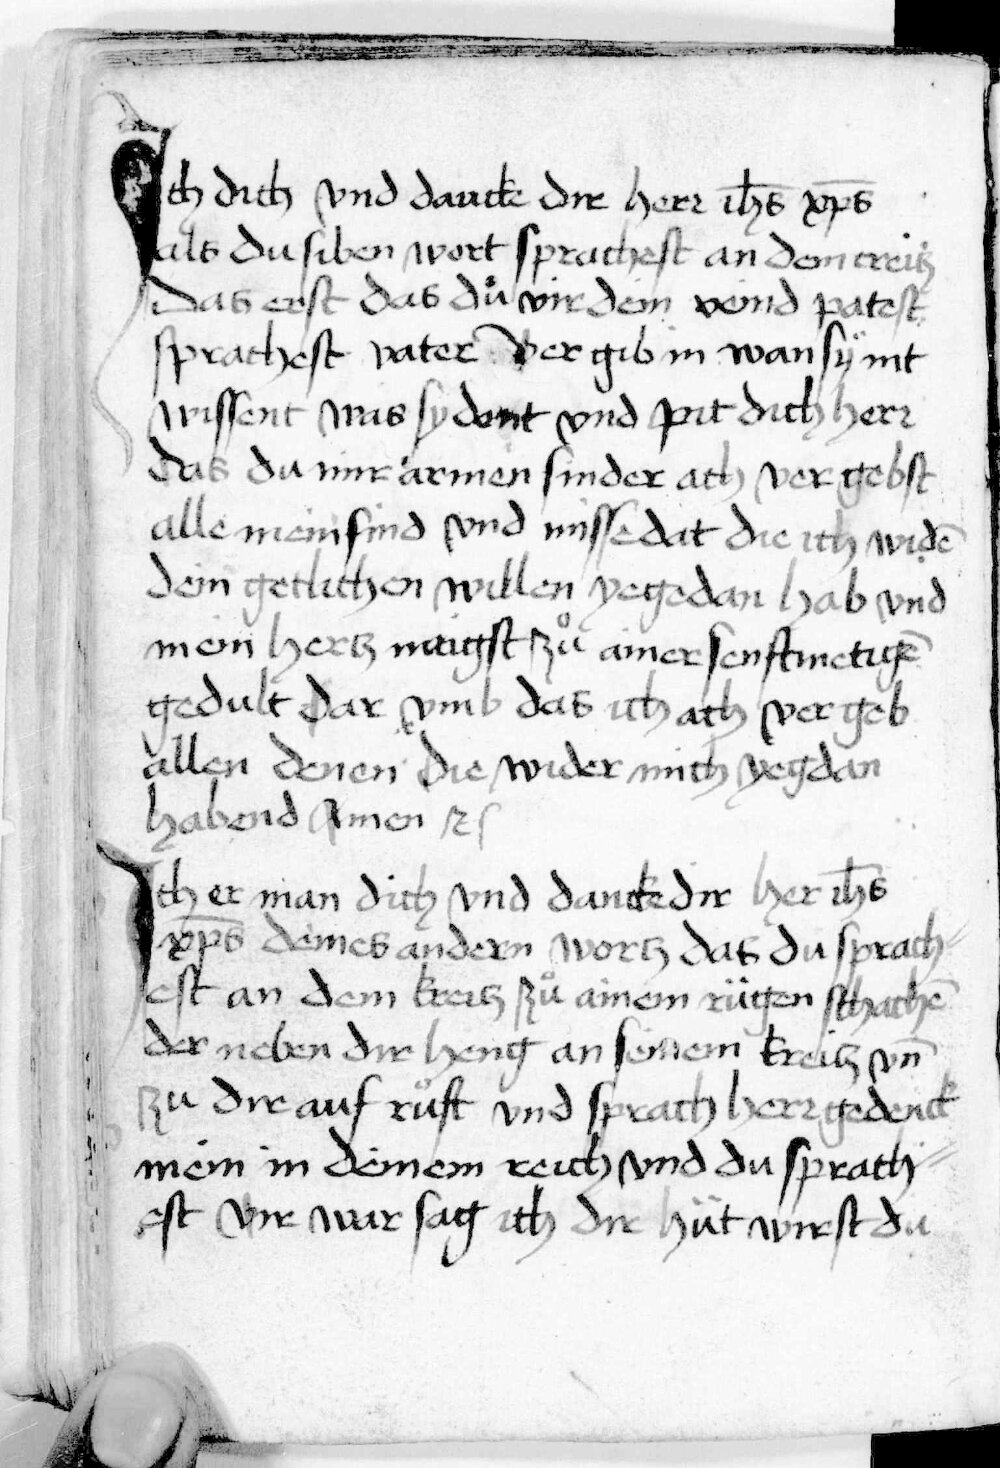 Ich dich vnd dancke dir herr ih̅s xp̅s
als du siben wort sprachest an dem creitz
Das erst das dů vir dein veind patest
sprachest vater ver gib in wan sÿ nit
wissent was sy dont vnd pit dich herr
das du mir armen sinder ach ver gebst
alle mein sind vnd misse dat die ich widē
dein getlichen willen yegedan hab vnd
mein hertz naigst zů ainer senftmetigē
gedult Dar vmb das ich ach ver geb
allen denen die wider mich yegdan
habend Amen
Ich er man dich vnd dancke dir her ih̅s
xp̅s deines andern wortz das du sprach⸗
est an dem kreitz zů ainem rügen schachē
der neben dir heng an seinem kreitz vn̄
zu dir auf růft vnd sprach herr gedenck
mein in deinem reich vnd du sprach⸗
est vir war sag ich dir hüt wirst du